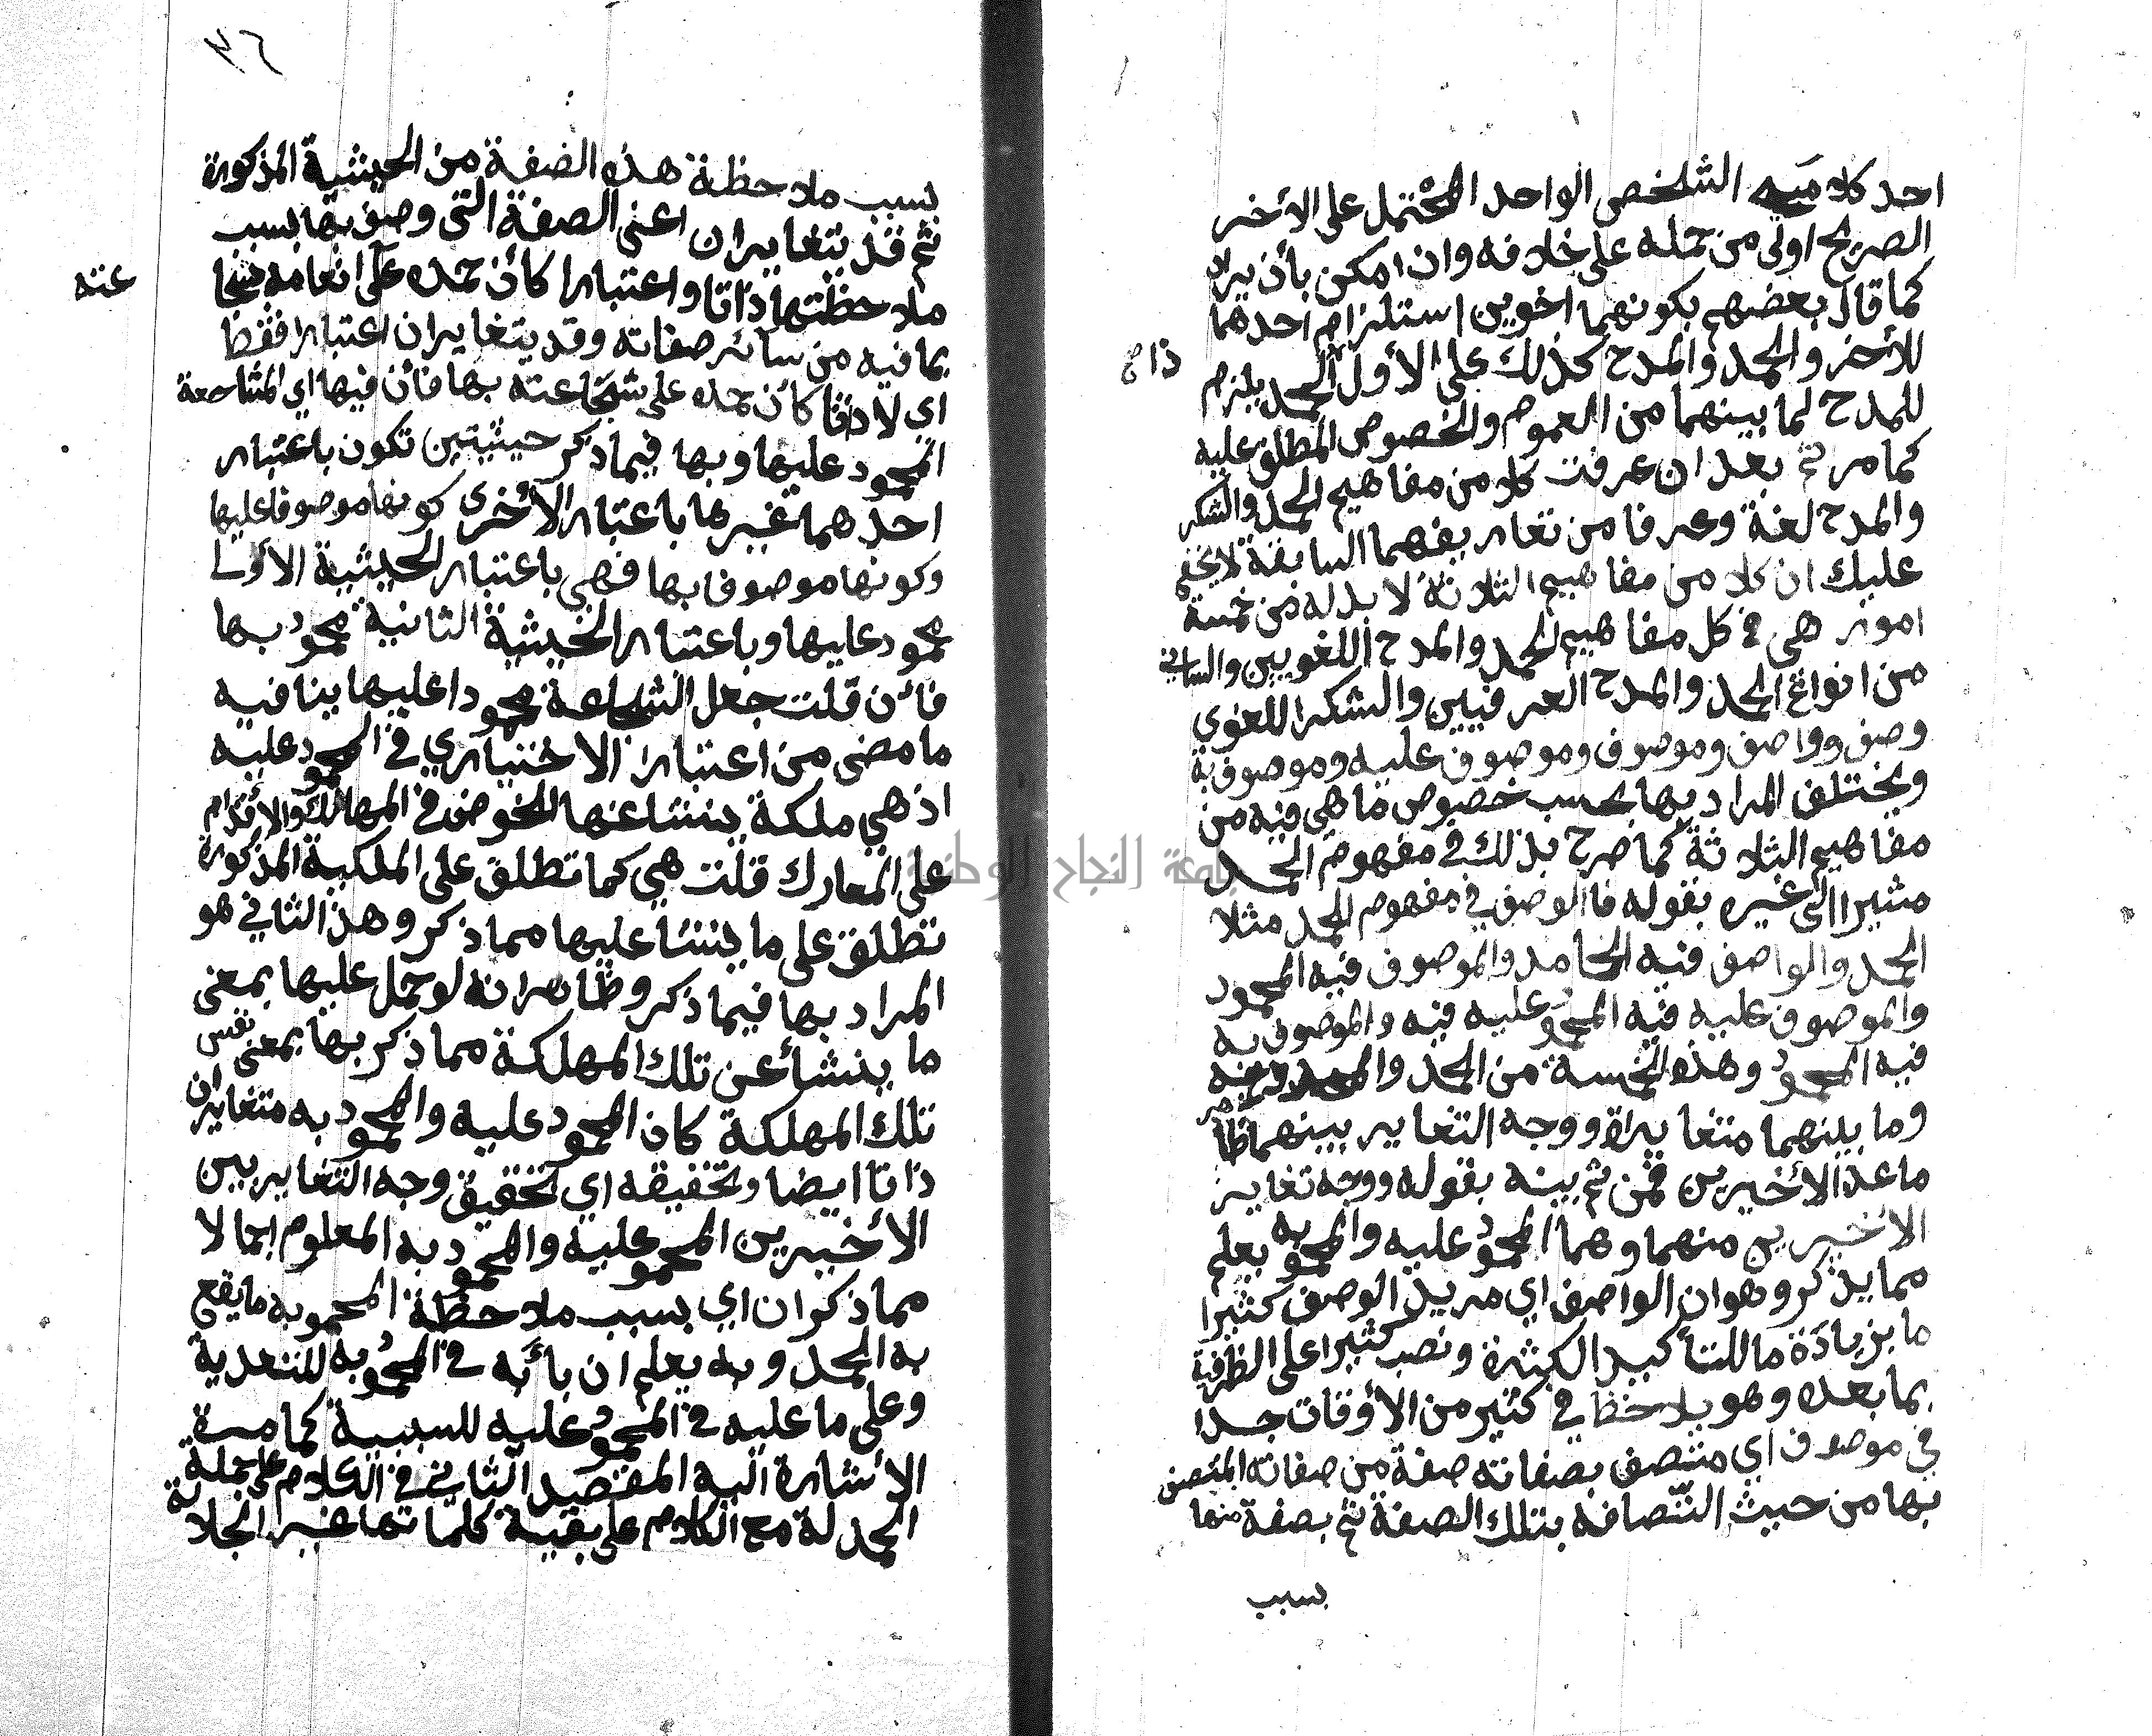 احد كلاميه الشخص الواحد المحتمل على الأخر
الصريح اولى من حمله على خلافه وان امكن بأن يراد
كما قال بعضهم بكونهما اخوين استلزام احدهما
للأخر والحمد والمدح كذلك على الأول الحمد يلزم
للمدح لما بينهما من العموم والخصوص المطلق عليه
كما مر ثم بعد ان عرفت كلا من مفاهيم الحمد والشكر
والمدح لغة وعرفا من تعاريفهما السابقة لا يخفى
عليك ان كلا من مفاهيم الثلاثة لا بد له من خمسة
امور هي في كل مفاهيم الحمد والمدح اللغويين والساني
من انواع الحمد والمدح العرفيين والشكر اللغوي
وصف وواصف وموصوف وموصوف عليه وموصوف به
ويختلف المراد بها بحسب خصوص ما هي فيه من
مفاهيم الثلاثة كما صرح بذلك في مفهوم الحمد
مشيرا الى غيره بقوله فالوصف في مفهوم الحمد مثلا
الحمد والواصف فيه الحامد والموصوف فيه المحمود
والموصوف عليه فيه المحمود عليه فيه والموصوف به
فيه المحمود وهذه الخمسة من الحمد والمحمود فيه
وما بينهما متغايرة ووجه التغاير بينهما ظاهر
ما عدا الأخيرين فمن ثم بينه بقوله ووجه تغاير
الأخيرين منهما وهما المحمود عليه والمحمود به يعلم
مما يذكر وهو ان الواصف اي مريد الوصف كثيرا
ما بزيادة ما للتأكيد الكثرة ونصب كثيرا على الظرفية
بما بعده وهو يلاحظ في كثير من الأوقات جدا
في موصوف اي متصف بصفاته صفة من صفاته المتصف
بها من حيث اتصافه بتلك الصفة ثم بصفة منها
بسبب
٣٦
بسبب ملاحظة هذه الصفة من الحيثية المذكورة
ثم قد يتغايران اعنى الصفة التى وصف بها بسبب
ملاحظتها ذاتا واعتبارا كأن حمده على انعامه
عته
بما فيه من سائر صفاته وقد يتغايران اعتبارا فقط
اي لا ذاتا كأن حمده على شجاعته بها فأن فيها اي الشجاعة
المحمود عليها وبها فيما ذكر حيثيتين تكون باعتبار
احدهما غيرها باعتبار الأخرى كونها موصوفا عليها
وكونها موصوفا بها فهي باعتبار الحيثية الأولى
محمود عليها وباعتبار الحيثية الثانية محمود بها
فأن قلت جعل الشجاعة محمودا عليها ينافيه
ما مضى من اعتبار الاختياري في المحمود عليه
اذ هي ملكة ينشا عنها الخوض في المهالك والأقدام
على المعارك قلت هي كما تطلق على الملكية المذكورة
تطلق على ما ينشا عليها مما ذكر وهذا الثاني هو
المراد بها فيما ذكر وظاهر انه لو حمل عليها بمعنى
ما ينشأ عن تلك المهلكة مما ذكر بها بمعنى نفس
تلك المهلكة كان المحمود عليه والمحمود به متغايران
ذاتا ايضا وتحقيقه اي تحقيق وجه التغاير بين
الأخيرين المحمود عليه والمحمود به المعلوم اجمالا
مما ذكر ان اي بسبب ملاحظة المحمو به ما يقع
به الحمد وبه يعلم ان بائه في المحمود به للتعدية
وعلى ما عليه في المحمود عليه للسببية كما مرة
الأشارة اليه المقصد الثاني في الكلام على جملة
الحمدلة مع الكلام على بقية كلماتها غير الجلالة